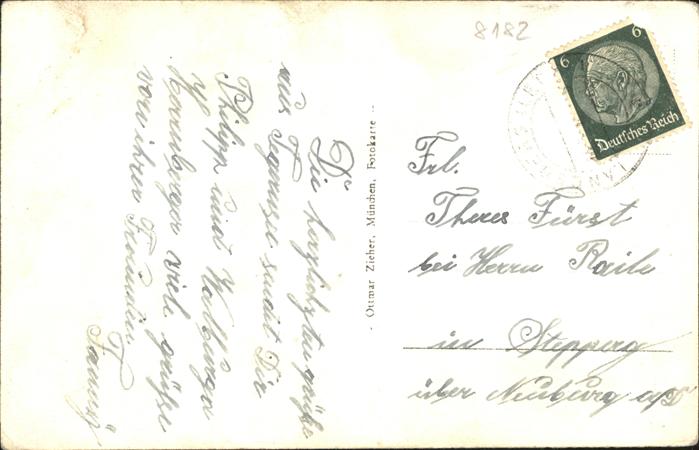 8182
6 6
Deutsches Reich
Die herzlichsten Grüße
aus Tegernsee sendet Dir
Philipp und Walburga
Hornberger viele grüße
von ihrer Freundin
Fanny
Ottmar Zieher, München, Fotokarte
Frl.
Theres Fürst
bei Herrn Raile
in Stepperg
über Neuburg a/D